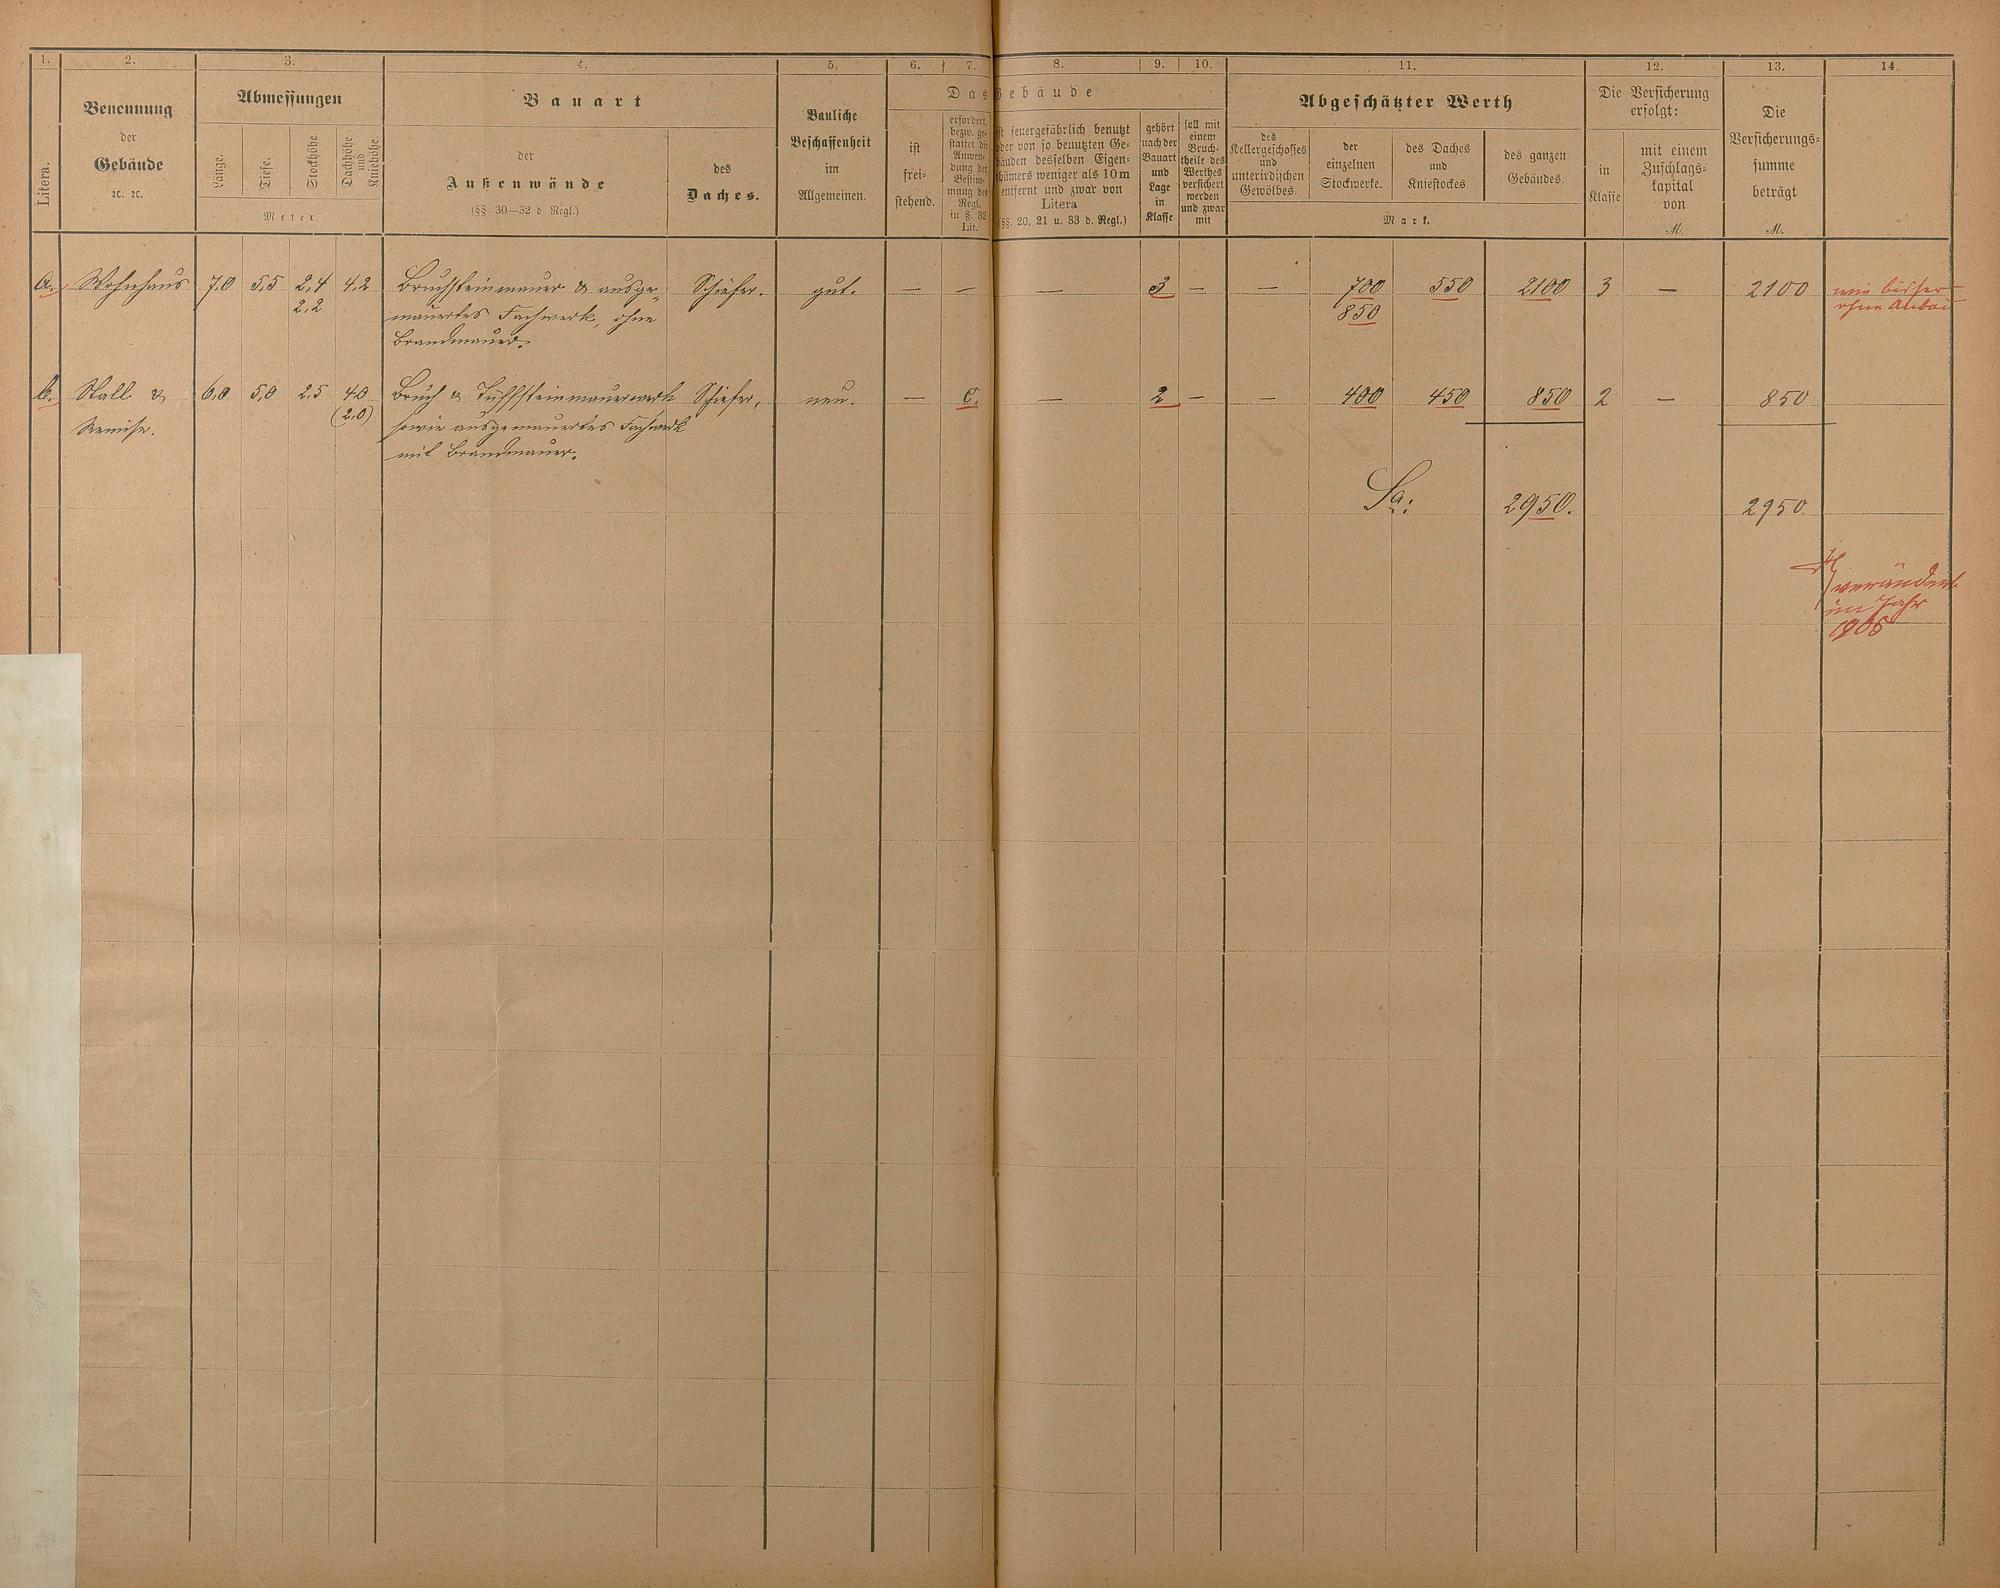 1. 2. 3. 4. 5. 6. 7. 8. 9. 10. 11. 12. 13. 14.
Litera.
Benennung
der
Gebäude
ꝛc. ꝛc.
Abmessungen
Länge.
Tiefe.
Stockhöhe
Dachhöhe
und
Kniehöhe.
Meter.
Bauart
der
Außenwände
(§§ 30—32 d Regl.)
des
Daches.
Bauliche
Beschaffenheit
im
Allgemeinen.
Das Gebäude
ist
frei-
stehend.
erfordert,
bezw. ge-
stattet die
Anwen-
dung der
Bestim-
mung des
Regl.
in §. 32
Lit.
ist feuergefährlich benutzt
oder von so benutzten Ge-
bäuden desselben Eigen-
thümers weniger als 10 m
entfernt und zwar von
Litera
(§§. 20, 21 u. 33 d. Regl.)
gehört
nach der
Bauart
und
Lage
in
Klasse
soll mit
einem
Bruch-
theile des
Werthes
versichert
werden
und zwar
mit
Abgeschätzter Werth
des
Kellergeschosses
und
unterirdischen
Gewölbes.
der
einzelnen
Stockwerke.
des Daches
und
Kniestockes.
des ganzen
Gebäudes.
Mark.
Die Versicherung
erfolgt:
in
Klasse
mit einem
Zuschlags-
kapital
von
M.
Die
Versicherungs-
summe
beträgt
M.
a. Wohnhaus 7.0 5,5 2,4 4,2 Bruchsteinmauer & ausge- Schiefer. gut. — — — 3 — — 700 550 2100 3 — 2100 wie bisher
2,2 mauertes Fachwerk, ohne 850 ohne Anbau
Brandmauer.
b. Stall & 6,0 5,0 2,5 4,0 Bruch & Tuffsteinmauerwerk Schiefer, neu. — C. — 2 — — 400 450 850 2 — 850
Remise. (2,0) sowie ausgemauertes Fachwerk
mit Brandmauer.
Sa: 2950. 2950
verändert
im Jahr
1905